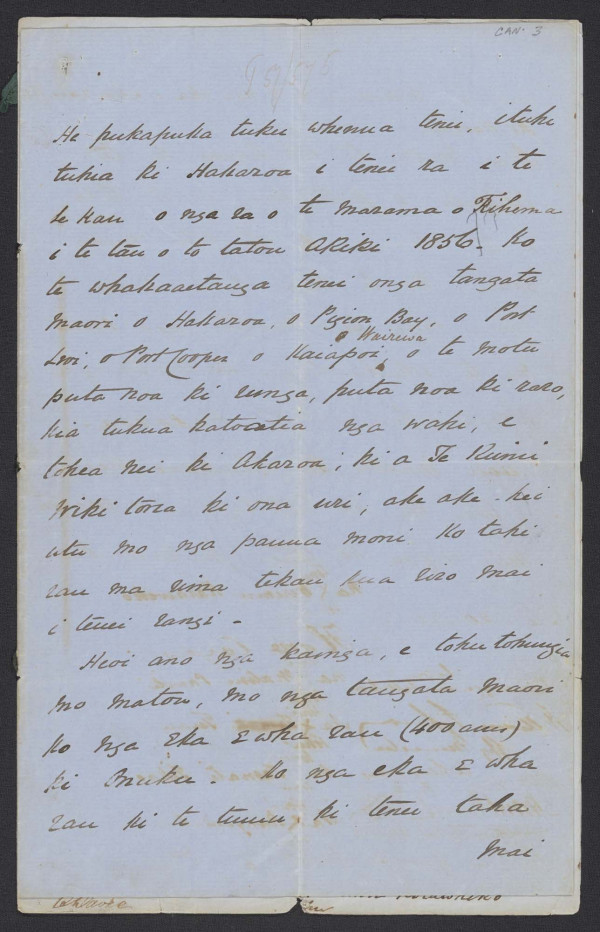 CAN. 3
He pukapuka tuku whenua tenei, i tuhi
tuhia ki Hakaroa i tenei ra i te
te kau o nga ra o te marama o Tihema
i te tau o to tatou Ariki 1856. Ko
te whakaaetanga tenei o nga tangata
Maori o Hakaroa, o Pigion Bay, o Port
o Wairewa
Levi, o Port Cooper o Kaiapoi, o te motu
puta noa ki runga, puta noa ki raro,
kia tukua katoatia nga wahi, e
tohea nei ki Akaroa, ki a Te Kuini
Wikitoria ki ona uri, ake ake - hei
utu mo nga pauna moni Ko tahi
rau ma rima tekau kua riro mai
i tenei rangi -
Heoi ano nga kainga, e tohutohungia
mo matou, mo nga tangata Maori
Ko nga Eka E wha rau (400 acres)
ki Onuku - Ko nga eka E wha
rau ki te tumu ki tenei taha
mai